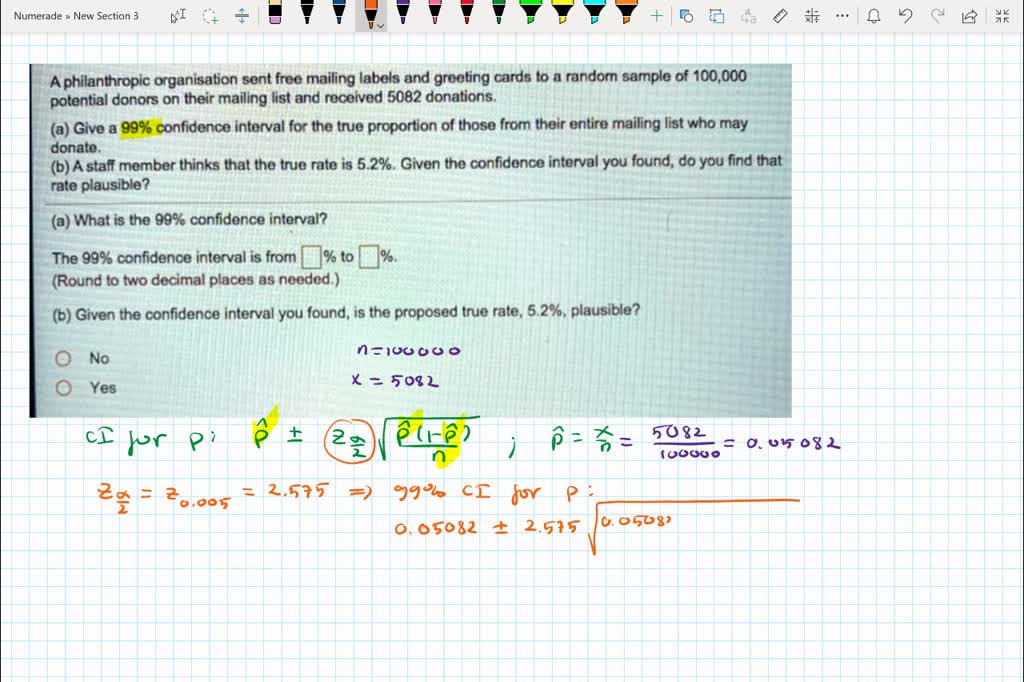 Numerade » New Section 3
A philanthropic organisation sent free mailing labels and greeting cards to a random sample of 100,000
potential donors on their mailing list and received 5082 donations.
(a) Give a 99% confidence interval for the true proportion of those from their entire mailing list who may
donate.
(b) A staff member thinks that the true rate is 5.2%. Given the confidence interval you found, do you find that
rate plausible?
(a) What is the 99% confidence interval?
The 99% confidence interval is from □% to □%.
(Round to two decimal places as needed.)
(b) Given the confidence interval you found, is the proposed true rate, 5.2%, plausible?
No
n=100000
Yes
x = 5082
CI for p: p̂ ± z_{α/2} √(p̂(1-p̂)/n) ; p̂ = x/n = 5082/100000 = 0.05082
z_{α/2} = z_{0.005} = 2.575 ⇒ 99% CI for p:
0.05082 ± 2.575 √0.05082